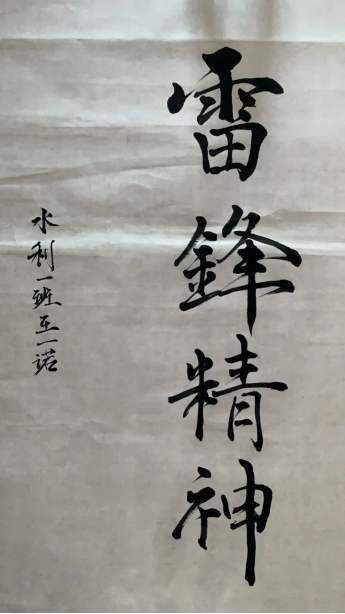 雷鋒精神
水利一班王一諾